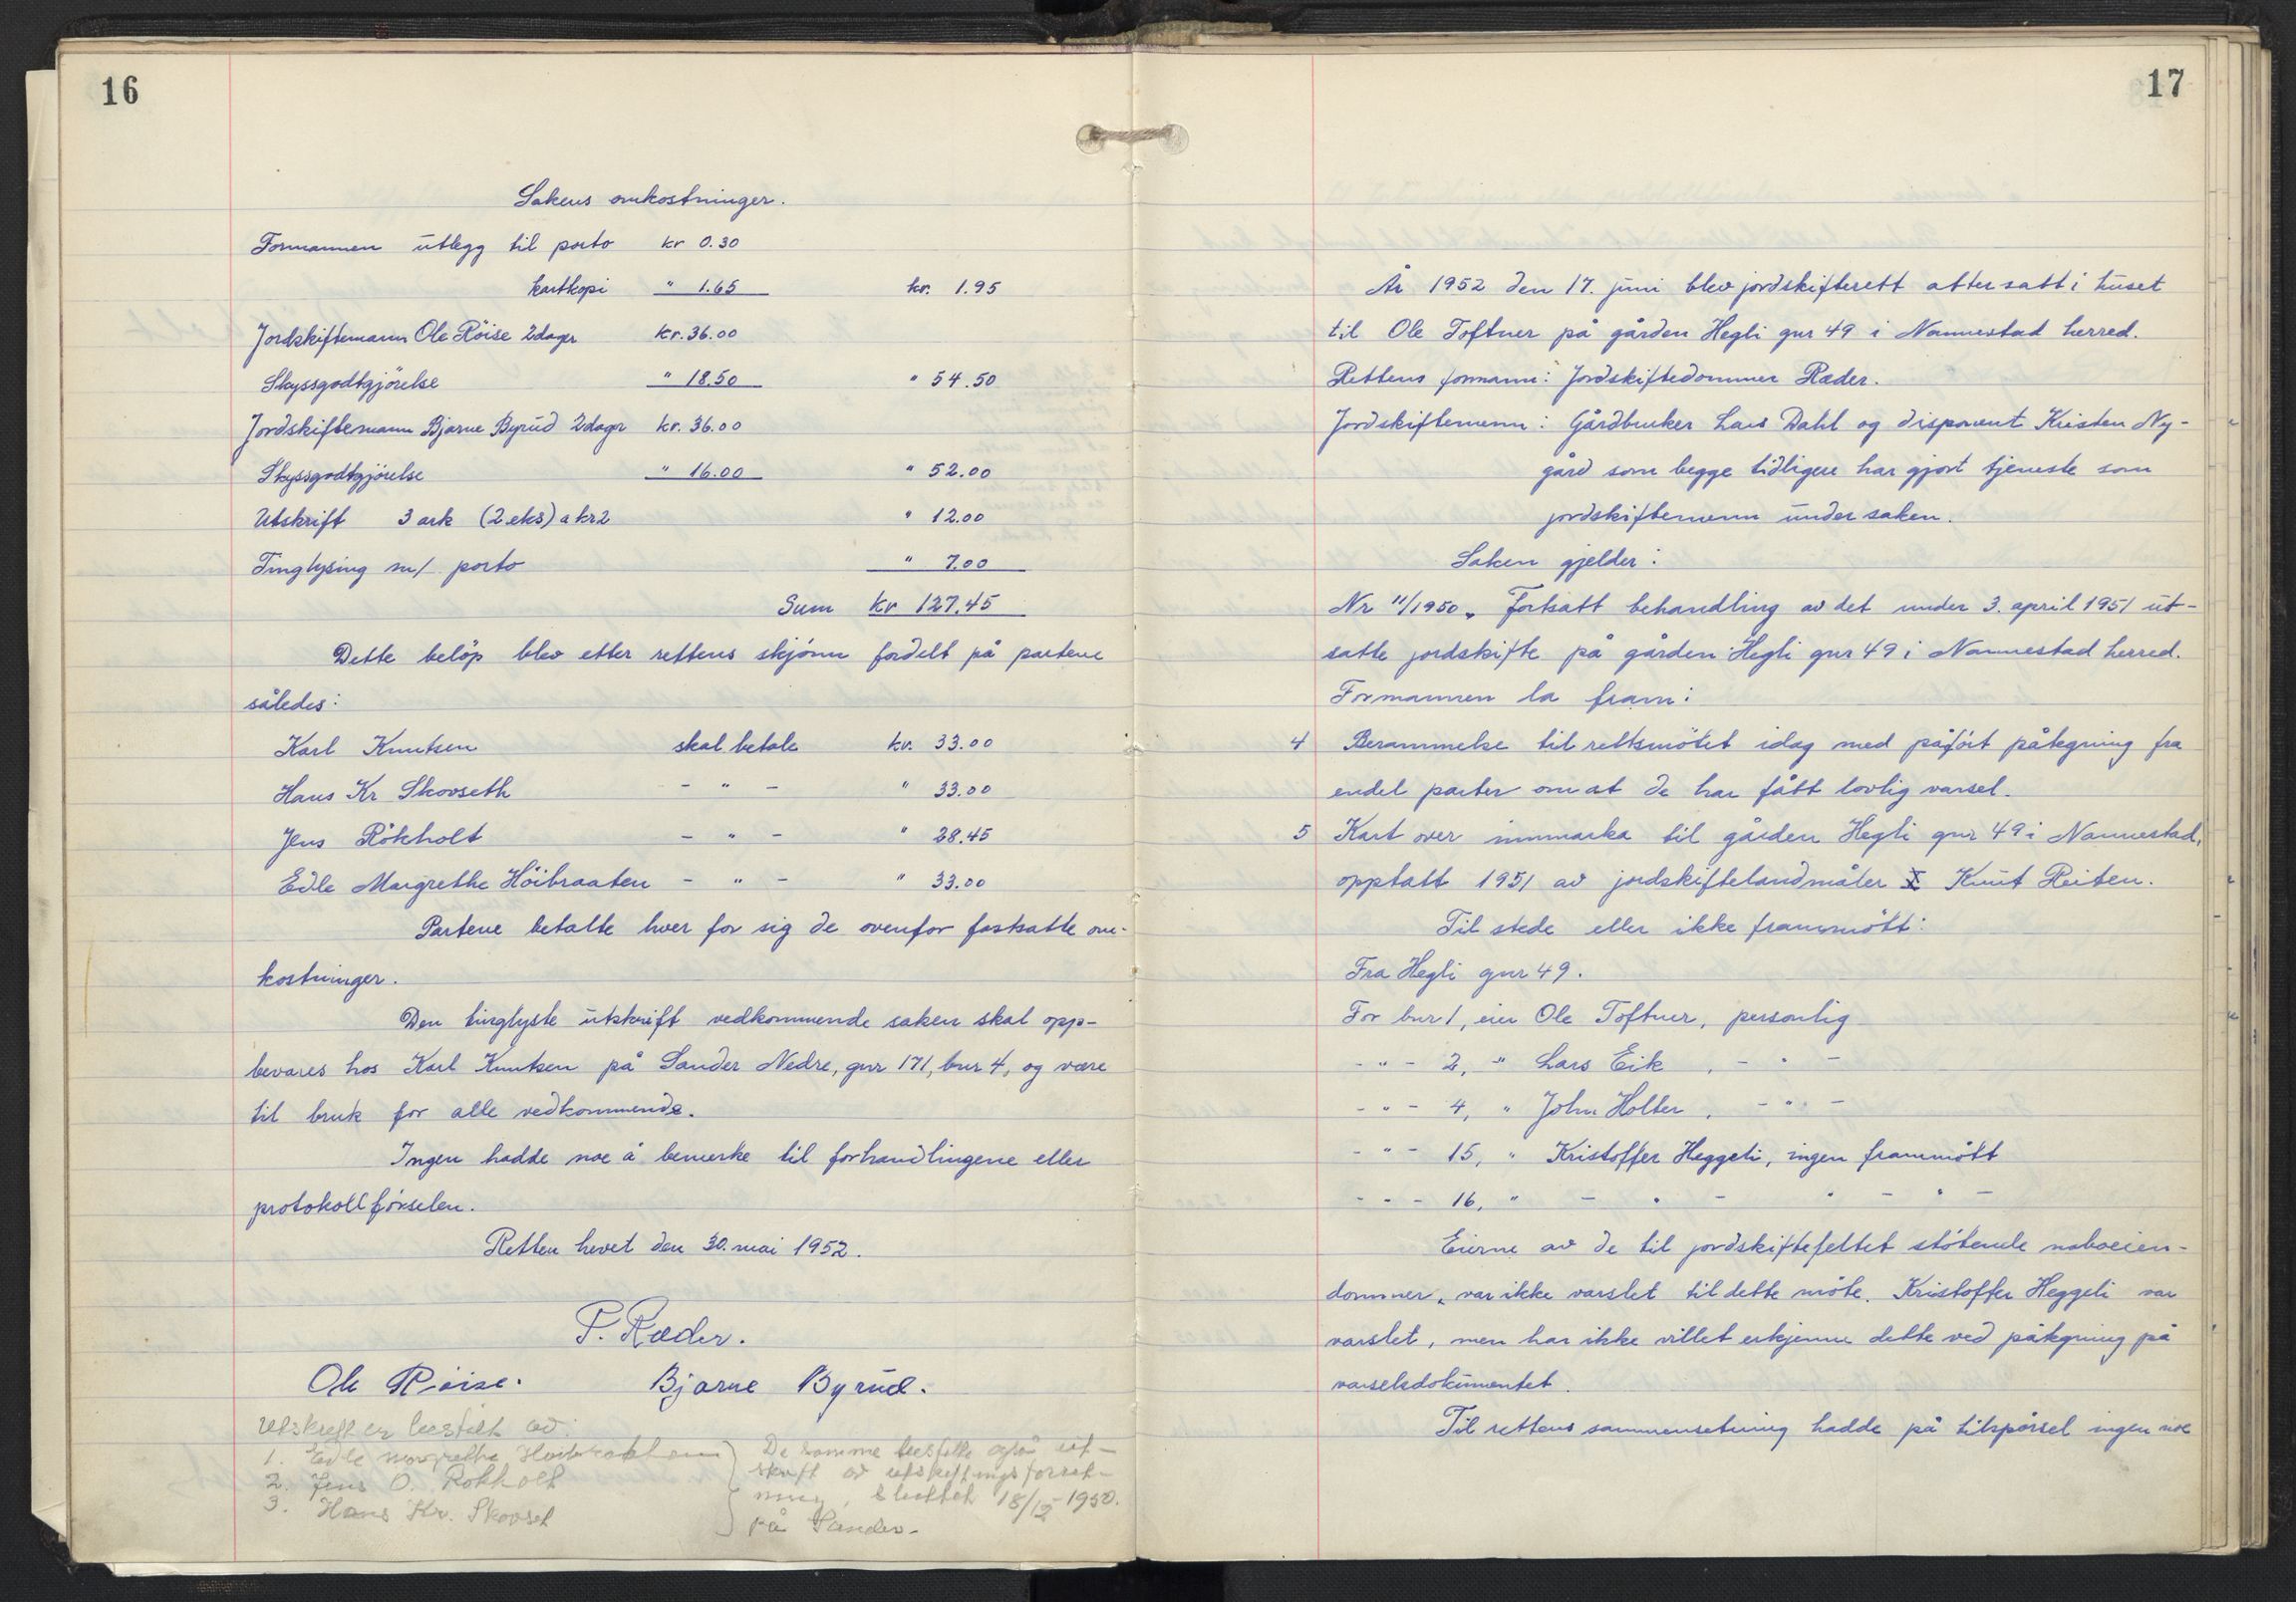 16
Sakens omkostninger.
Formannen utlegg til porto kr 0.30
kartkopi " 1.65 kr. 1.95
Jordskiftemann Ole Röise 2dager kr. 36.00
Skyssgodtgjörelse " 18.50 " 54.50
Jordskiftemann Bjarne Byrud 2dager kr. 36.00
Skyssgodtgjörelse " 16.00 " 52.00
Utskrift 3 ark (2 eks) a kr 2 " 12.00
Tinglysing m/ porto " 7.00
Sum kr 127.45
Dette belöp blev etter rettens skjönn fordelt på partene
således:
Karl Knutsen skal betale kr. 33.00
Hans Kr Skovseth - " - " 33.00
Jens Rökholt - " - " 28.45
Edle Margrethe Höibraaten - " - " 33.00
Partene betalte hver for sig de ovenfor fastsatte om-
kostninger.
Den tinglyste utskrift vedkommende saken skal opp-
bevares hos Karl Knutsen på Sander Nedre, gnr 171, bnr 4, og være
til bruk for alle vedkommende.
Ingen hadde noe å bemerke til forhandlingene eller
protokollförselen.
Retten hevet den 30. mai 1952.
P. Ræder.
Ole Röise. Bjarne Byrud.
Utskrift er bestilt av:
1. Edle Margrethe Hoibraathen } De samme bestilte også ut-
2. Jens O. Rokholt skrift av utskiftingsforret-
3. Hans Kr. Skovset ning, sluttet 18/12 1950.
på Sander.
17
År 1952 den 17. juni blev jordskifterett atter satt i huset
til Ole Toftner på gården Hegli gnr 49 i Nannestad herred.
Rettens formann: Jordskiftedommer Ræder.
Jordskiftemenn: Gårdbruker Lars Dahl og disponent Kristen Ny-
gård som begge tidligere har gjort tjeneste som
jordskiftemenn under saken.
Saken gjelder:
Nr 11/1950. Fortsatt behandling av det under 3. april 1951 ut-
satte jordskifte på gården Hegli gnr 49 i Nannestad herred.
Formannen la fram:
4 Berammelse til rettsmötet idag med påfört påtegning fra
endel parter om at de har fått lovlig varsel.
5 Kart over innmarka til gården Hegli gnr 49 i Nannestad,
opptatt 1951 av jordskiftelandmåler Knut Reiten.
Til stede eller ikke frammött:
Fra Hegli gnr 49.
For bnr 1, eier Ole Toftner, personlig
- " - 2, " Lars Eik, - " -
- " - 4, " John Holter, - " -
- " - 15, " Kristoffer Heggeli, ingen frammött
- " - 16, " - " - " - " -
Eierne av de til jordskiftefeltet stötende naboeien-
dommer, var ikke varslet til dette möte. Kristoffer Heggeli var
varslet, men har ikke villet erkjenne dette ved påtegning på
varselsdokumentet.
Til rettens sammensetning hadde på tilspörsel ingen noe